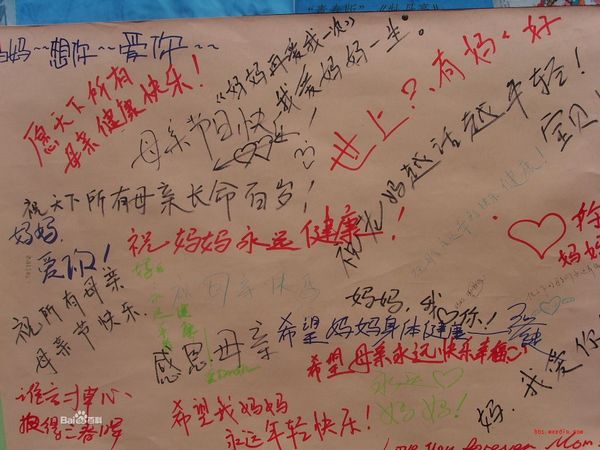 妈~~想你~~爱你~~
愿天下所有
母亲健康快乐!
《妈妈再爱我一次》
我爱妈妈一生。
母亲节日快乐!
世上?有妈、好
祝老妈越活越年轻!
宝贝
祝天下所有母亲长命百岁!
妈妈,
爱你!
祝妈妈永远健康!
祝所有母亲
母亲节快乐.
祝母亲快乐
妈妈
永远
健康
妈妈,我 你!
感恩母亲
希望妈妈身体健康
希望母亲永远快乐幸福
永远
妈妈!
谁言寸草心
报得三春晖
希望我妈妈
永远年轻快乐!
妈.我爱你
妈妈
Love You forever Mom
Bai百科
bbs.werdin.com